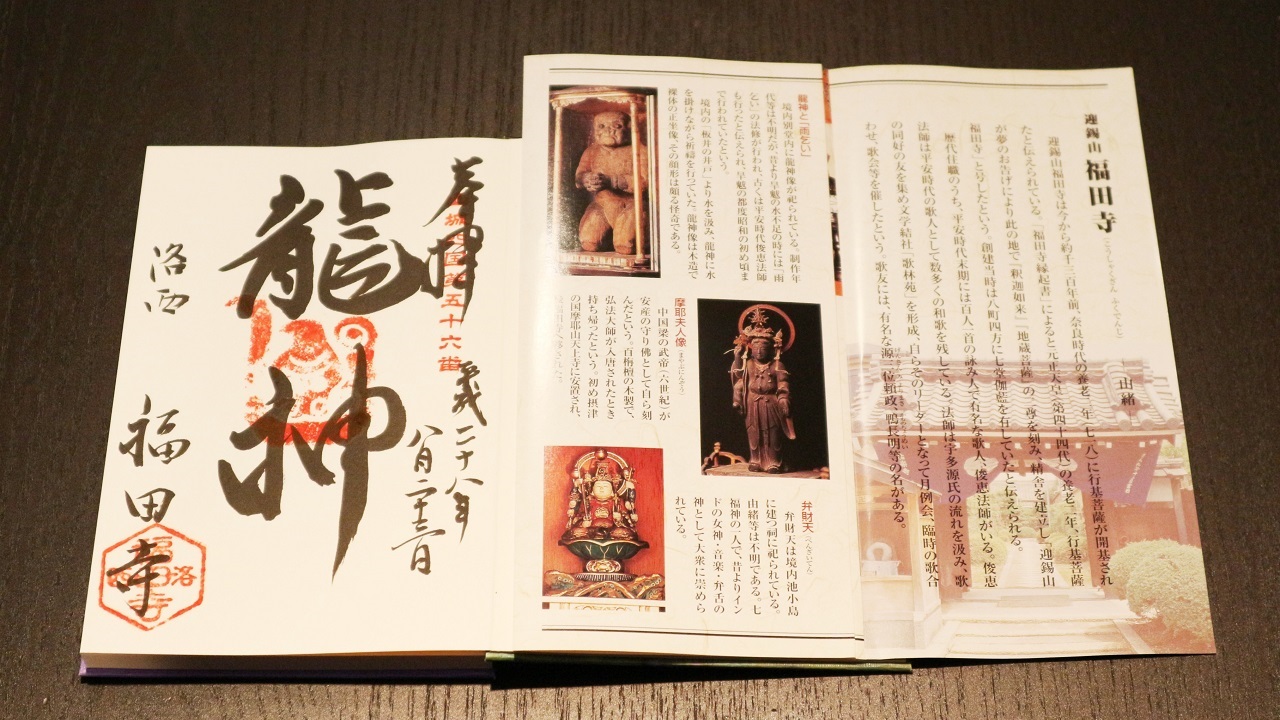 迎錫山 福田寺
由緒
迎錫山福田寺は今から約千三百年前、奈良時代の養老二年(七一八)に行基菩薩が開基され
たと伝えられている。「福田寺縁起書」によると元正天皇(第四十四代)の養老二年、行基菩薩
が夢のお告げにより此の地で「釈迦如来」「地蔵菩薩」の二尊を刻み、精舎を建立し「迎錫山
福田寺」と号したという。創建当時は八町四方に七堂伽藍を有していたと伝えられる。
歴代住職のうち、平安時代末期には百人一首の詠み人で有名な歌人、俊恵法師がいる。俊恵
法師は平安時代の歌人として数多くの和歌を残している。法師は宇多源氏の流れを汲み、歌
の同好の友を集め文学結社「歌林苑」を形成、自らそのリーダーとなって月例会、臨時の歌合
わせ、歌会等を催したという。歌友には、有名な源三位頼政、鴨長明等の名がある。
龍神と「雨乞い」
境内別堂内に龍神像が祀られている。制作年
代等は不明だが、昔より旱魃の水不足の時には「雨
乞い」の法修が行われ、古くは平安時代俊恵法師
も行ったと伝えられ、旱魃の都度昭和の初め頃ま
で行われていたという。
境内の「板井の井戸」より水を汲み、龍神に水
を掛けながら祈祷を行っていた。龍神像は木造で
裸体の正半像、その顔形は頗る怪奇である。
摩耶夫人像(まやぶにんぞう)
中国梁の武帝(六世紀)が
安産の守り佛として自ら刻
んだという。百栴檀の木製で、
弘法大師が入唐されたとき
持ち帰ったという。初め摂津
の国摩耶山天上寺に安置され、
弁財天(べんざいてん)
弁財天は境内池小島
に建つ祠に祀られている。
由緒等は不明である。七
福神の一人で、昔よりイン
ドの女神・音楽・弁舌の
神として大衆に崇められ
れている。
奉拝
五十六番
平成二十八年
八月二十三日
龍神
洛西
福田寺
洛西
福田寺